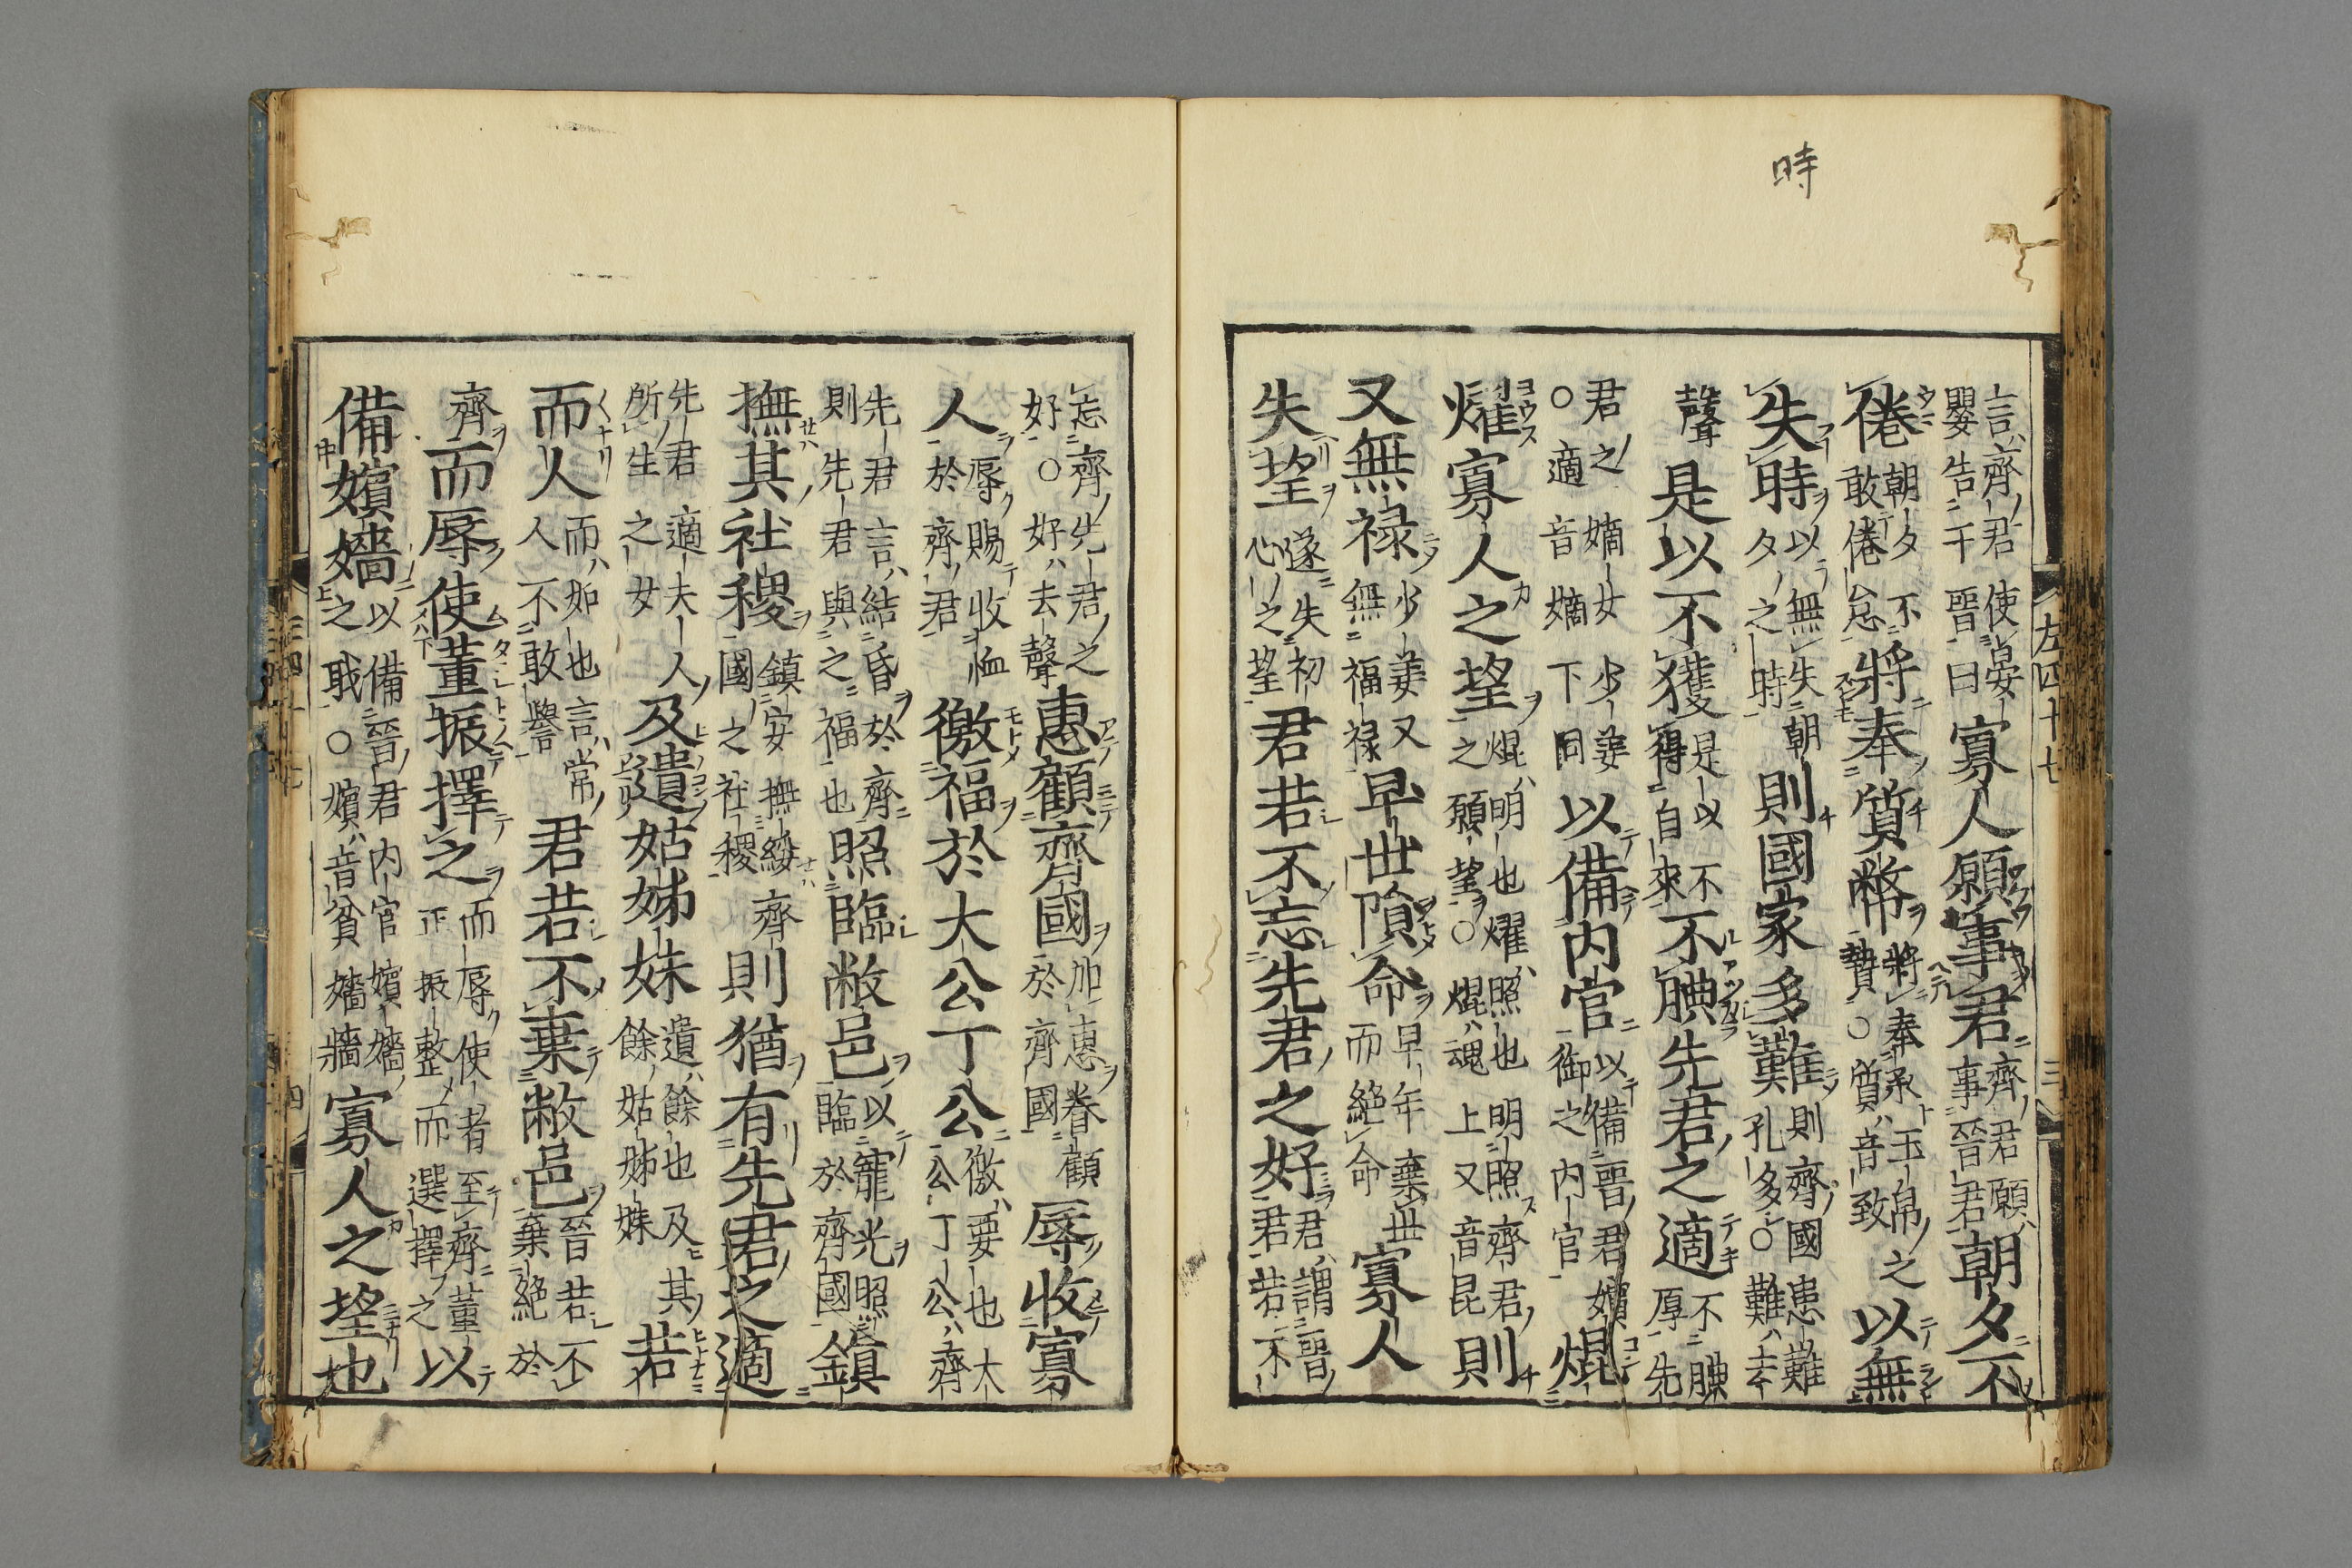 時
言齊君使晏
嬰告于晉曰
寡人願事君
齊君願
事晉君
朝夕不
倦
朝夕不
敢倦怠
將奉質幣
將奉承玉帛之
贄○質音致
以無
失時
以無失朝
夕之時
則國家多難
則齊國患難
孔多○難去
聲
是以不獲
是以不
得自來
不腆先君之適
不腆
厚先
君之嫡女少姜
○適音嫡下同
以備内官
以備晉君嬪
御之内官
焜
燿寡人之望
焜明也燿照也明照齊君
之願望○焜魂上又音昆
則
又無祿
少姜又
無福祿
早世隕命
早年棄世
而絕命
寡人
失望
遂失初
心之望
君若不忘先君之好
君謂晉
君若不
忘齊先君之
好○好去聲
惠顧齊國
加惠眷顧
於齊國
辱收寡
人
辱賜收恤
於齊君
徼福於大公丁公
徼要也大
公丁公齊
先君言結昏於齊
則先君與之福也
照臨敝邑
以寵光照
臨於齊國
鎮
撫其社稷
鎮安撫綏齊
國之社稷
則猶有先君之適
先君適夫人
所生之女
及遺姑姊妹
遺餘也及其
餘姑姊妹
若
而人
而如也言常
人不敢譽
君若不棄敝邑
晉若不
棄絕於
齊
而辱使董振擇之
而辱使者至齊董
正振整而選擇之
以
備嬪嬙
以備晉君内官嬪嬙
之職○嬪音貧嬙牆
寡人之望也
左四十七
三